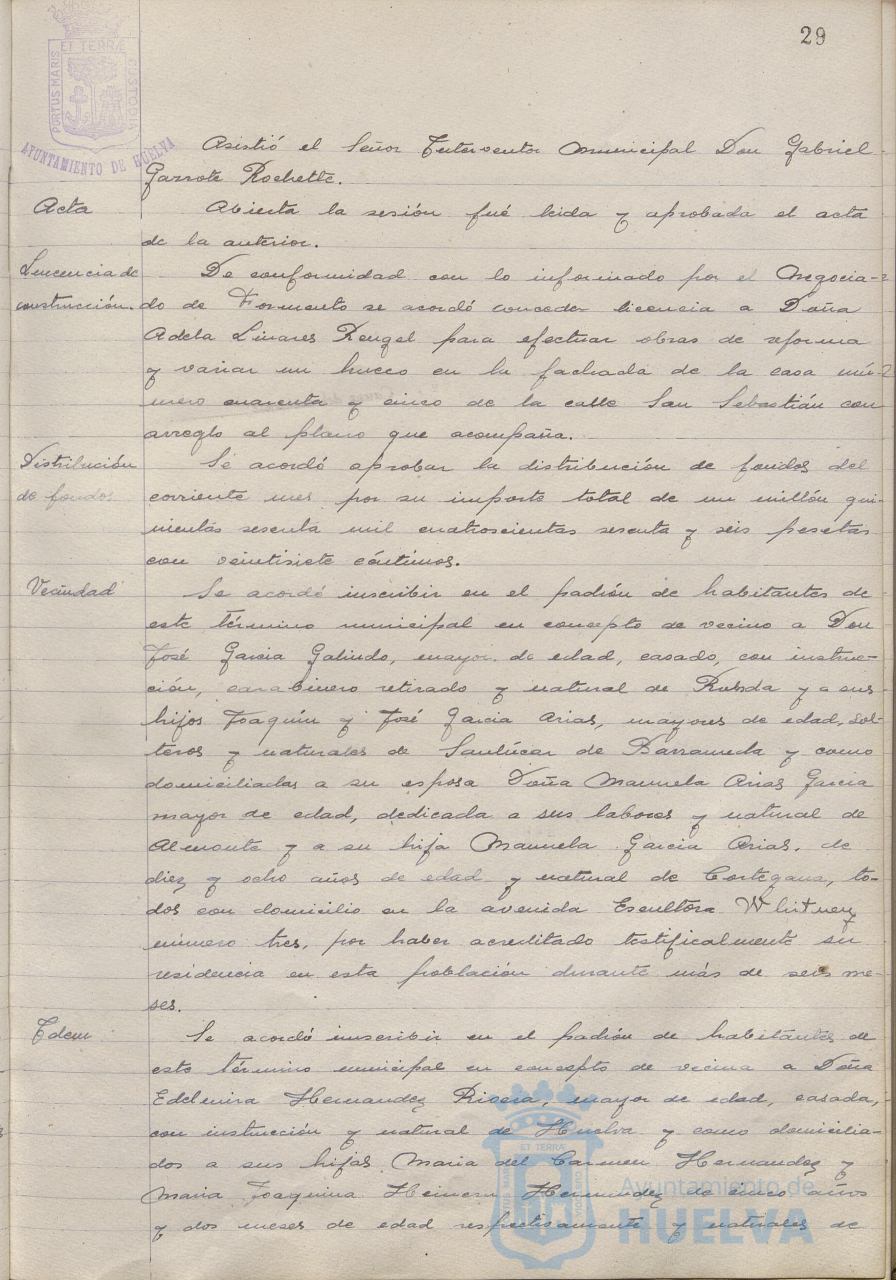 29
PORTUS MARIS ET TERRÆ CUSTODIA
AYUNTAMIENTO DE HUELVA
Asistió el Señor Interventor municipal Don Gabriel
Garrote Rochette.
Acta
Abierta la sesión fué leida y aprobada el acta
de la anterior.
Lincencia de
construcción.
De conformidad con lo informado por el Negocia-
do de Formento se acordó conceder licencia a Doña
Adela Linares Rengel para efectuar obras de reforma
y variar un hueco en la fachada de la casa nú-
mero cuarenta y cinco de la calle San Sebastián con
arreglo al plano que acompaña.
Distribución
de fondos
Se acordó aprobar la distribución de fondos del
corriente mes por su importe total de un millón qui-
nientas sesenta mil cuatroscientas sesenta y seis pesetas
con veintisiete céntimos.
Vecindad
Se acordó inscribir en el padrón de habitantes de
este término municipal en concepto de vecino a Don
José Garcia Galindo, mayor de edad, casado, con instruc-
ción, carabinero retirado y natural de y a sus
hijos Joaquín y José Garcia Arias, mayores de edad, sol-
teros y naturales de Sanlúcar de Barrameda y como
domiciliadas a su esposa Doña Manuela Arias Garcia
mayor de edad, dedicada a sus labores y natural de
Almonte y a su hija Manuela Garcia Arias, de
diez y ocho años de edad y natural de Cortegana, to-
dos con domicilio en la avenida Escultora Whitney
número tres, por haber acreditado testificalmente su
residencia en esta población durante más de seis me-
ses.
Idem
Se acordó inscribir en el padrón de habitantes de
este término municipal en concepto de vecina a Doña
Edelmira Hernandez Rivera, mayor de edad, casada,
con instrucción y natural de Huelva y como domicilia-
dos a sus hijas Maria del Carmen Hernandez y
Maria Joaquina Hernandez de cinco años
y dos meses de edad respectivamente y naturales de
ET TERRÆ
Ayuntamiento de
HUELVA